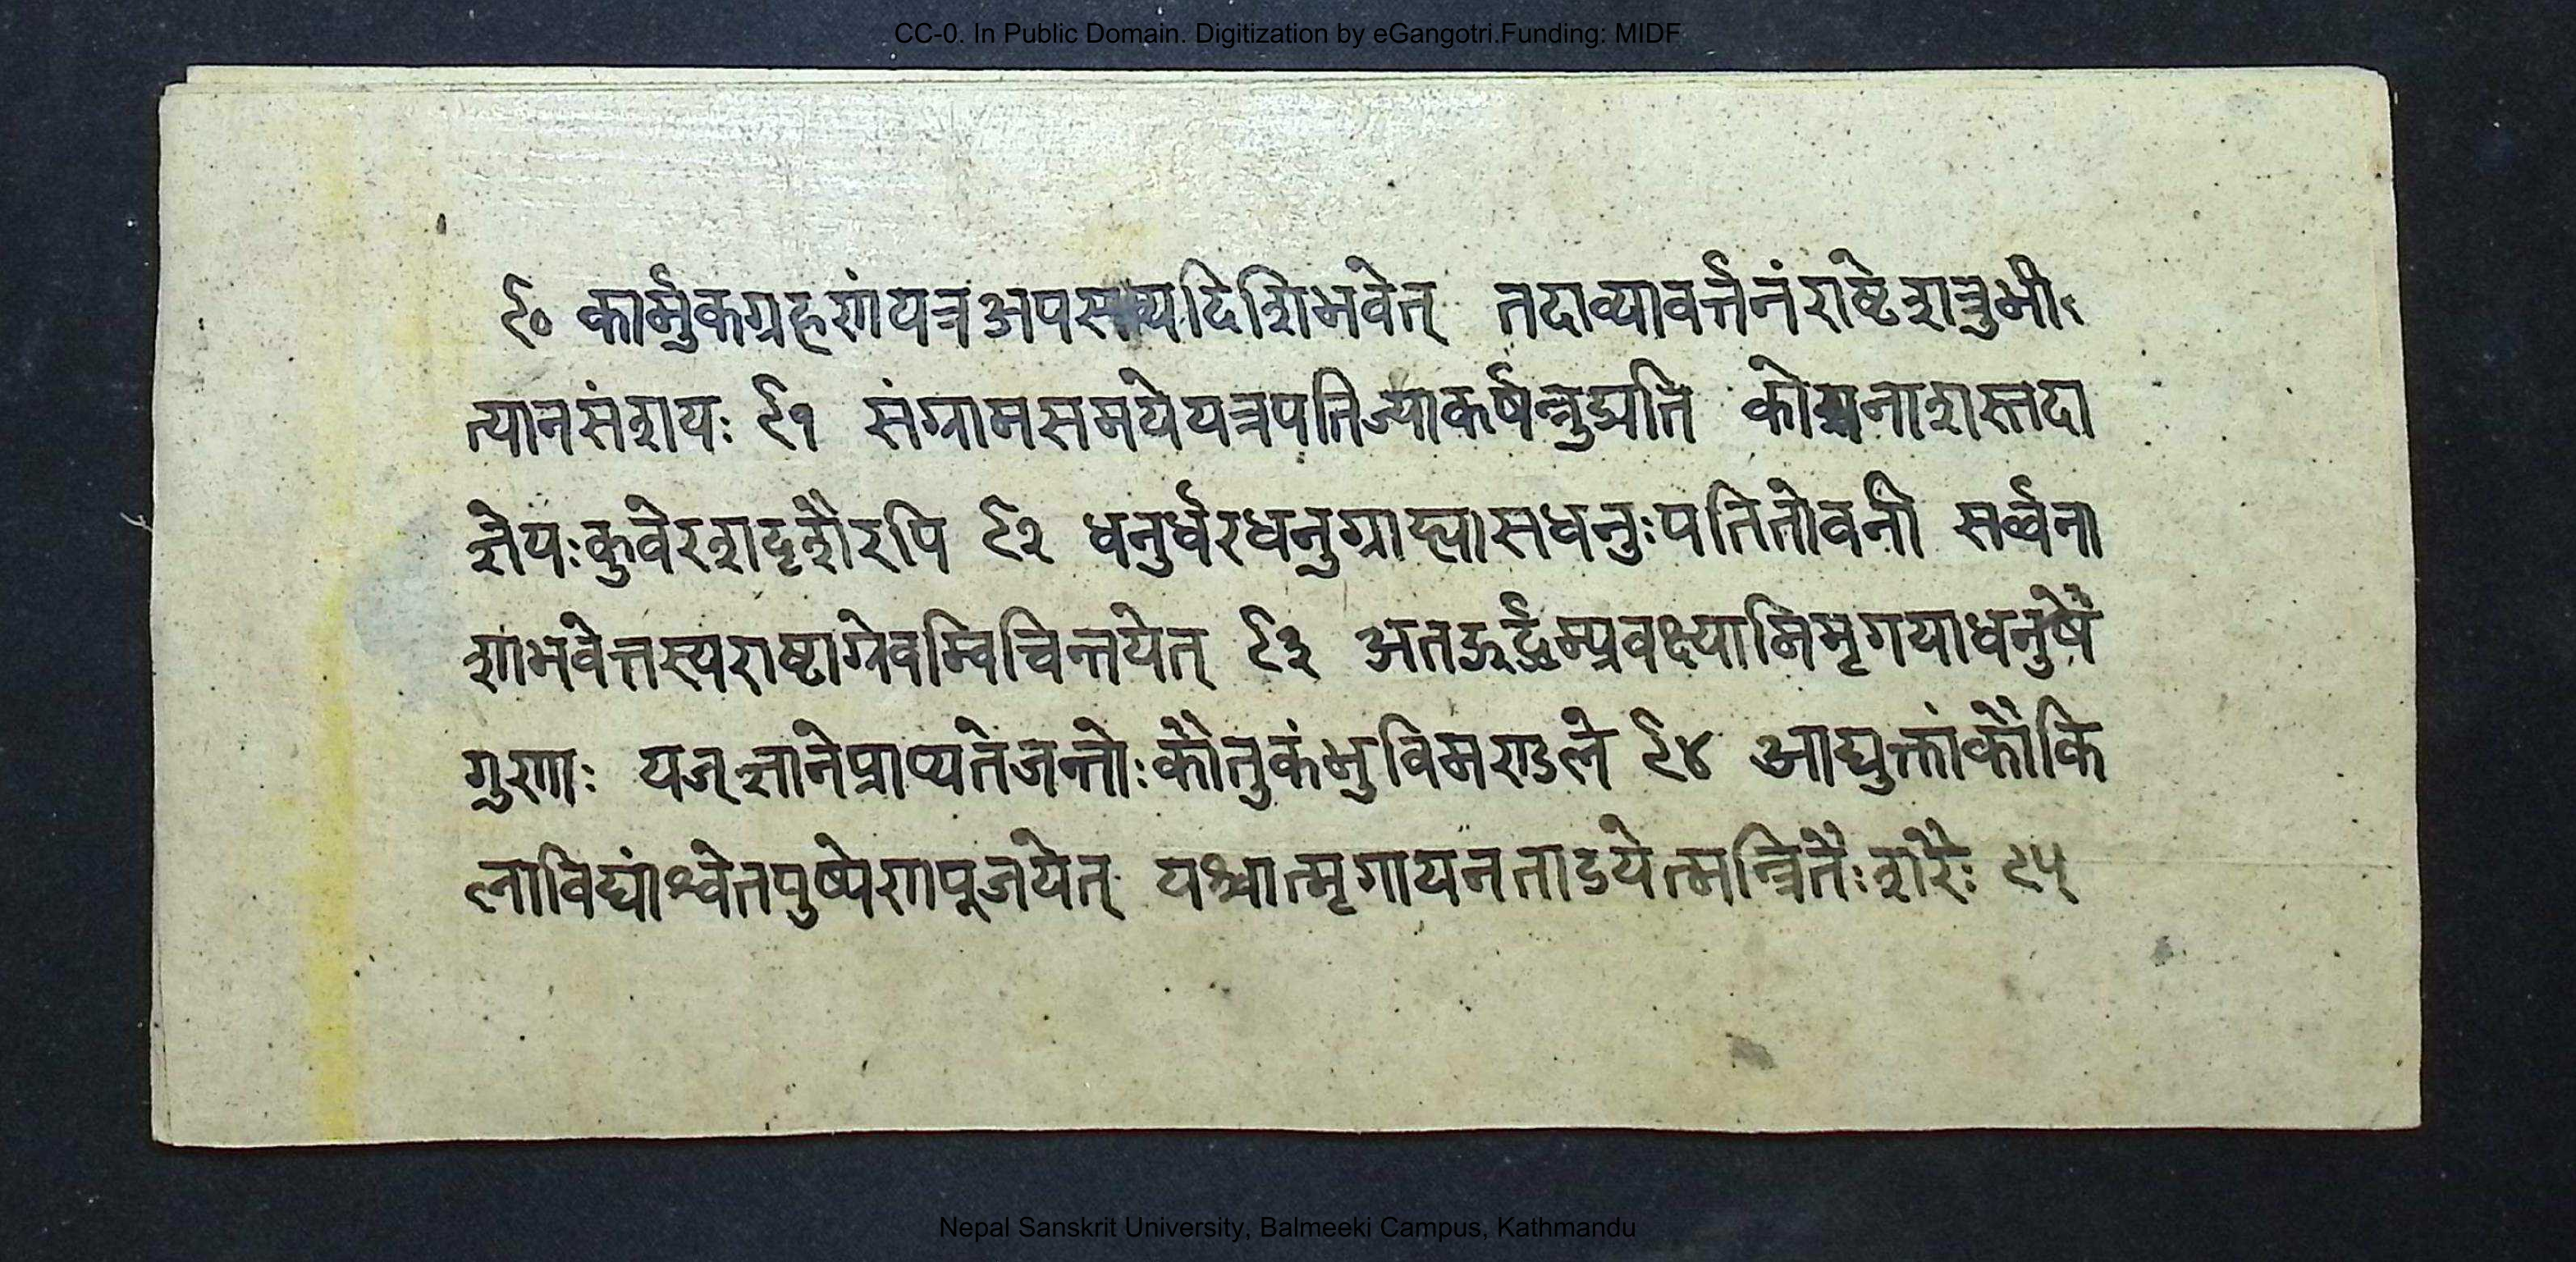 CC-0. In Public Domain. Digitization by eGangotri.Funding: MIDF
९० कार्मुकग्रहणंयत्रअपसव्यदिशिभवेत् तदाव्यावर्त्तनंराष्टेशत्रुभी
त्यानसंशयः ९१ संग्रामसमयेयत्रपतिज्याकर्षन्त्रुद्यति कोशनाशस्तदा
ज्ञेयःकुवेरशदृशैरपि ९२ धनुर्धरधनुग्राह्यासधनुःपतितोवनी सर्व्वना
शाभवेत्तस्यराष्टाग्रेवम्विचिन्तयेत् ९३ अतऊर्द्ध्वम्प्रवक्ष्यामिमृगयाधनुषे
गुणाः यज्ज्ञानेप्राप्यतेजन्तोःकौतुकंभुविमण्डले ९४ आद्युक्तांकौकि
लाविद्यांश्वेतपुष्पेणपूजयेत् पश्चात्मृगायनताडयेत्मन्त्रितैःशरैः ९५
Nepal Sanskrit University, Balmeeki Campus, Kathmandu